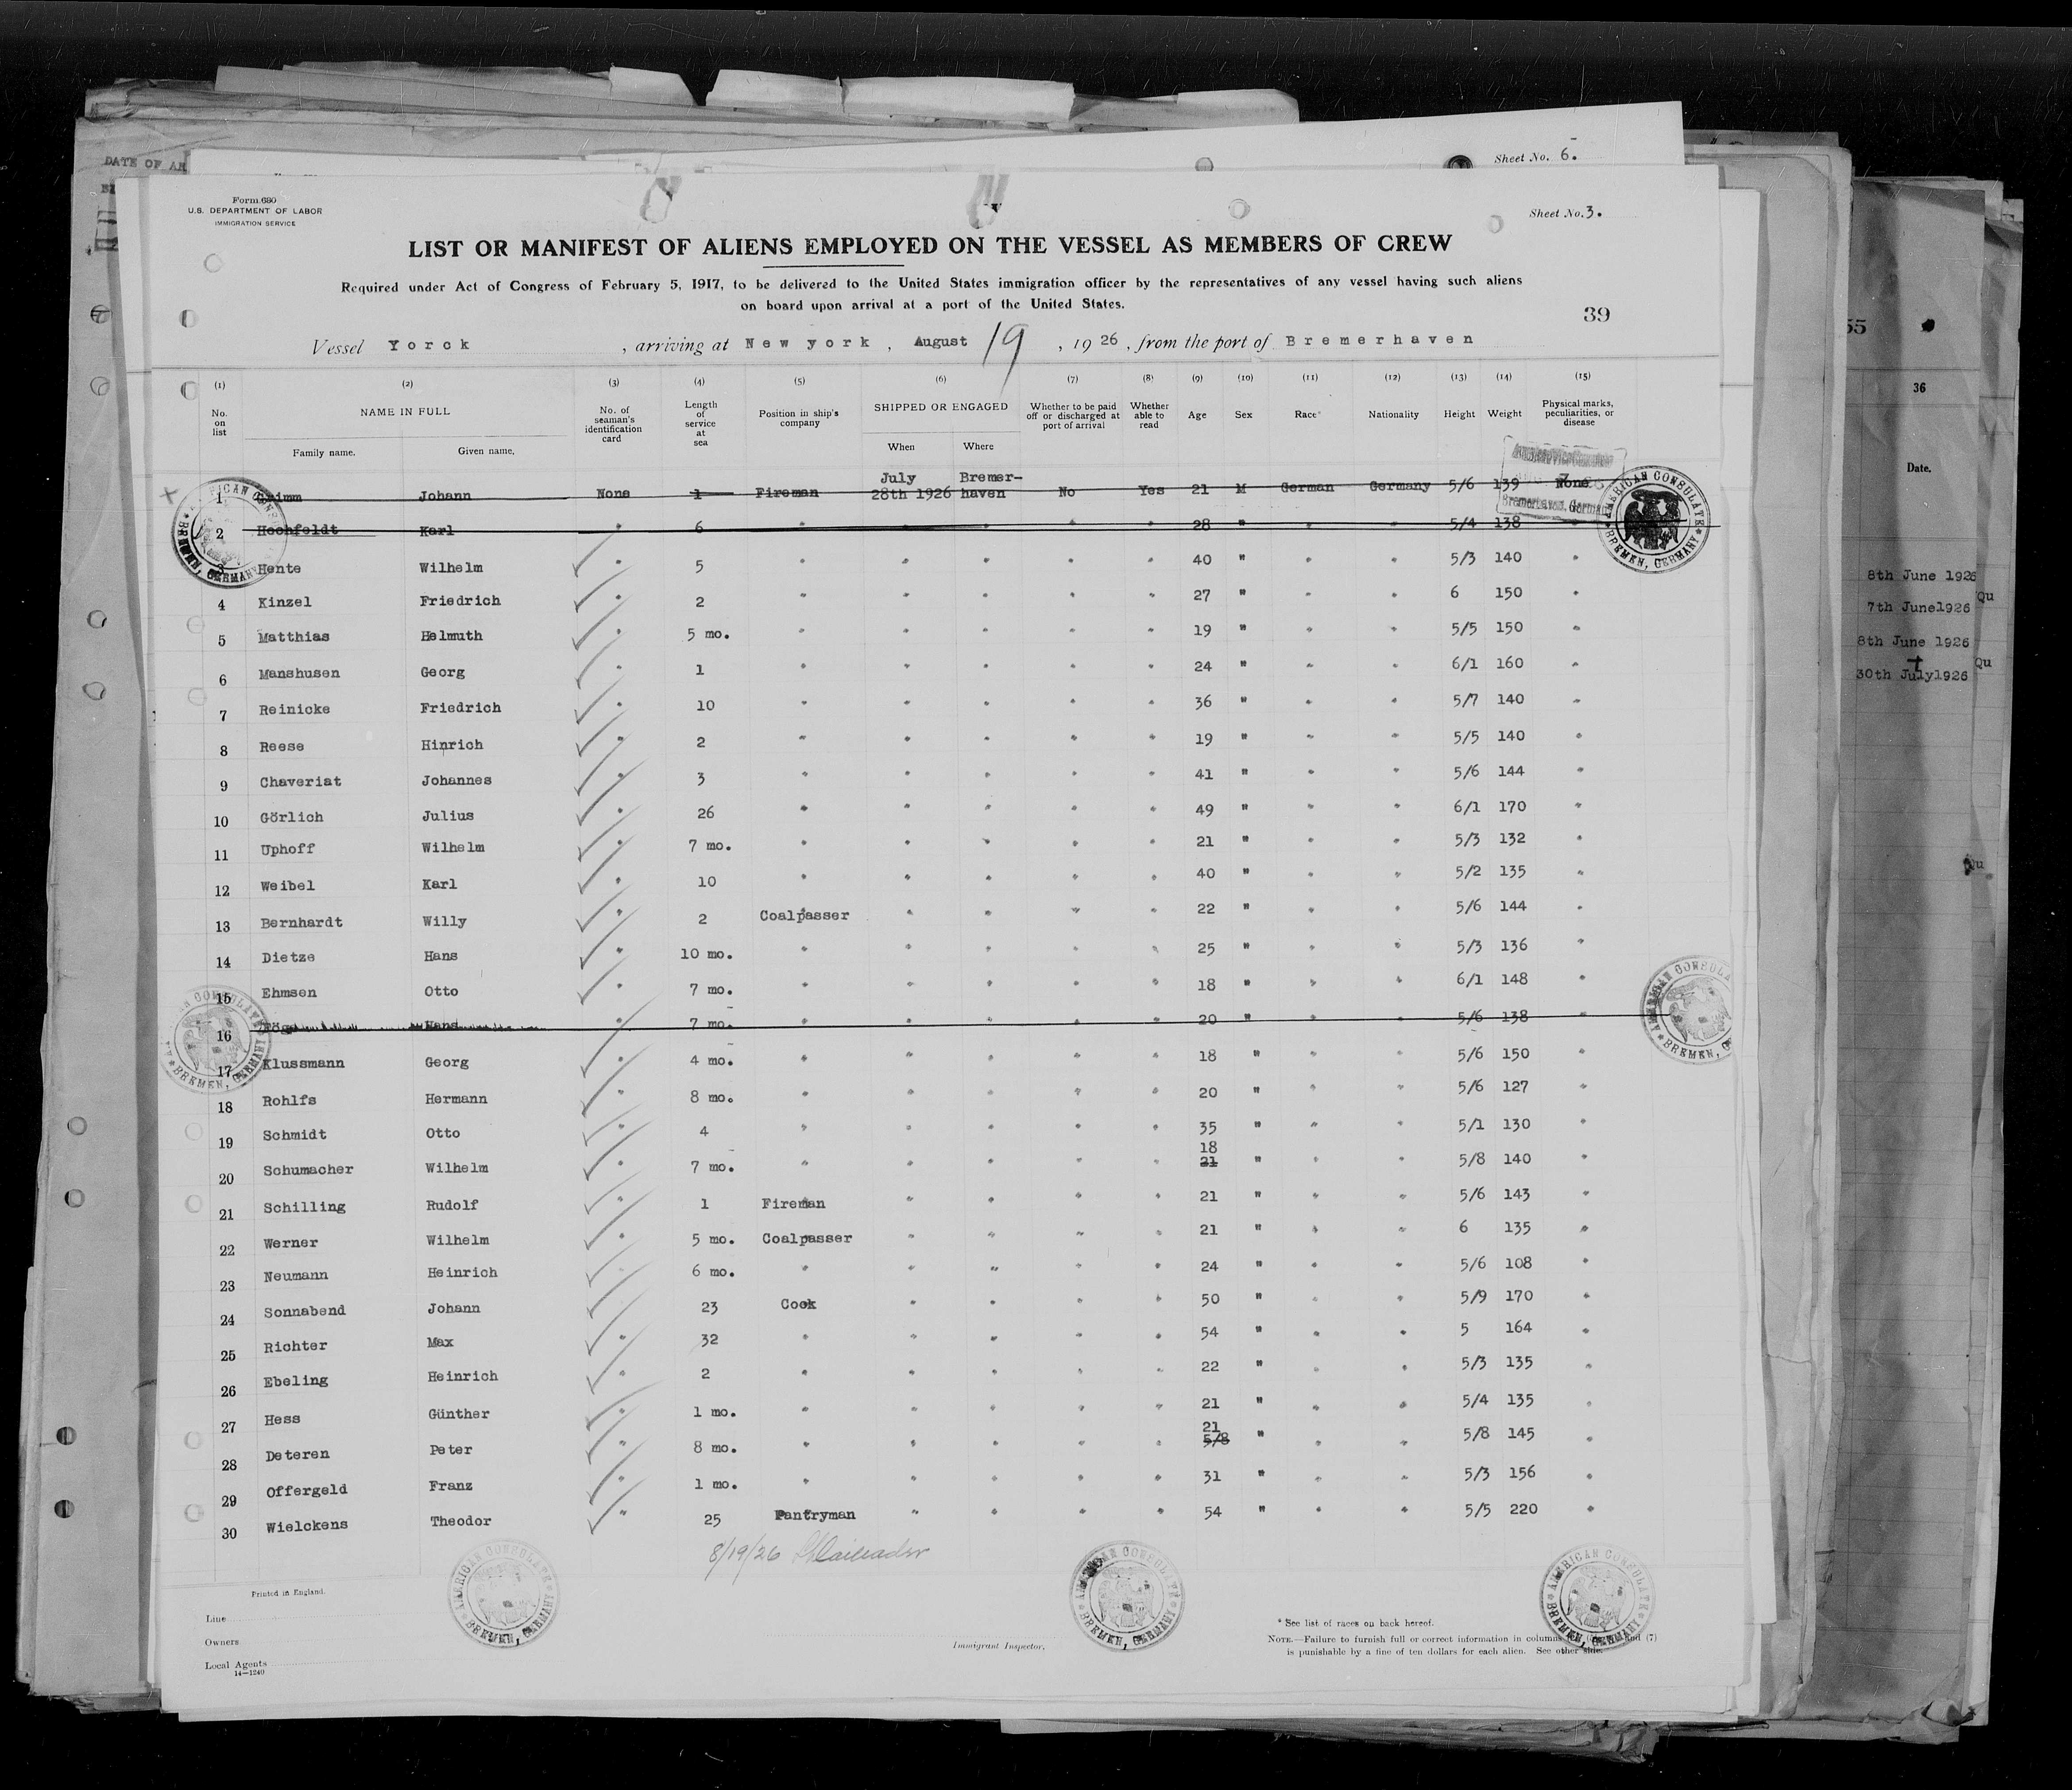 DATE OF AR
Sheet No. 6.
Form 680
U.S. DEPARTMENT OF LABOR
IMMIGRATION SERVICE
Sheet No. 3.
LIST OR MANIFEST OF ALIENS EMPLOYED ON THE VESSEL AS MEMBERS OF CREW
Required under Act of Congress of February 5, 1917, to be delivered to the United States immigration officer by the representatives of any vessel having such aliens
on board upon arrival at a port of the United States.
39
Vessel Yorck , arriving at New york , August 19 , 1926 , from the port of Bremerhaven
(1) (2) (3) (4) (5) (6) (7) (8) (9) (10) (11) (12) (13) (14) (15)
No. on list NAME IN FULL Family name. Given name. No. of seaman's identification card Length of service at sea Position in ship's company SHIPPED OR ENGAGED When Where Whether to be paid off or discharged at port of arrival Whether able to read Age Sex Race* Nationality Height Weight Physical marks, peculiarities, or disease
1 Grimm Johann None 1 Fireman July 28th 1926 Bremer-haven No Yes 21 M German Germany 5/6 139 None
2 Hochfeldt Karl " 6 " " " " " 28 " " " 5/4 138 "
3 Hente Wilhelm " 5 " " " " " 40 " " " 5/3 140 "
4 Kinzel Friedrich " 2 " " " " " 27 " " " 6 150 "
5 Matthias Helmuth " 5 mo. " " " " " 19 " " " 5/5 150 "
6 Manshusen Georg " 1 " " " " " 24 " " " 6/1 160 "
7 Reinicke Friedrich " 10 " " " " " 36 " " " 5/7 140 "
8 Reese Hinrich " 2 " " " " " 19 " " " 5/5 140 "
9 Chaveriat Johannes " 3 " " " " " 41 " " " 5/6 144 "
10 Görlich Julius " 26 " " " " " 49 " " " 6/1 170 "
11 Uphoff Wilhelm " 7 mo. " " " " " 21 " " " 5/3 132 "
12 Weibel Karl " 10 " " " " " 40 " " " 5/2 135 "
13 Bernhardt Willy " 2 Coalpasser " " " " 22 " " " 5/6 144 "
14 Dietze Hans " 10 mo. " " " " " 25 " " " 5/3 136 "
15 Ehmsen Otto " 7 mo. " " " " " 18 " " " 6/1 148 "
16 Hans " 7 mo. " " " " " 20 " " " 5/6 138 "
17 Klussmann Georg " 4 mo. " " " " " 18 " " " 5/6 150 "
18 Rohlfs Hermann " 8 mo. " " " " " 20 " " " 5/6 127 "
19 Schmidt Otto " 4 " " " " " 35 " " " 5/1 130 "
20 Schumacher Wilhelm " 7 mo. " " " " " 18 21 " " " 5/8 140 "
21 Schilling Rudolf " 1 Fireman " " " " 21 " " " 5/6 143 "
22 Werner Wilhelm " 5 mo. Coalpasser " " " " 21 " " " 6 135 "
23 Neumann Heinrich " 6 mo. " " " " " 24 " " " 5/6 108 "
24 Sonnabend Johann " 23 Cook " " " " 50 " " " 5/9 170 "
25 Richter Max " 32 " " " " " 54 " " " 5 164 "
26 Ebeling Heinrich " 2 " " " " " 22 " " " 5/3 135 "
27 Hess Günther " 1 mo. " " " " " 21 " " " 5/4 135 "
28 Deteren Peter " 8 mo. " " " " " 21 5/8 " " " 5/8 145 "
29 Offergeld Franz " 1 mo. " " " " " 31 " " " 5/3 156 "
30 Wielckens Theodor " 25 Pantryman " " " " 54 " " " 5/5 220 "
8/19/26
Printed in England.
Line
Owners
Local Agents
14—1240
Immigrant Inspector.
* See list of races on back hereof.
NOTE.—Failure to furnish full or correct information in columns and (7)
is punishable by a fine of ten dollars for each alien. See other side.
AMERICAN CONSULATE
BREMEN, GERMANY
AMERICAN CONSULATE
BREMEN, GERMANY
AMERICAN CONSULATE
BREMEN, GERMANY
AMERICAN CONSULATE
BREMEN, GERMANY
AMERICAN CONSULATE
BREMEN, GERMANY
Bremerhaven, Germany
55
36
Date.
8th June 1926
Qu
7th June1926
8th June 1926
Qu
30th July1926
Qu